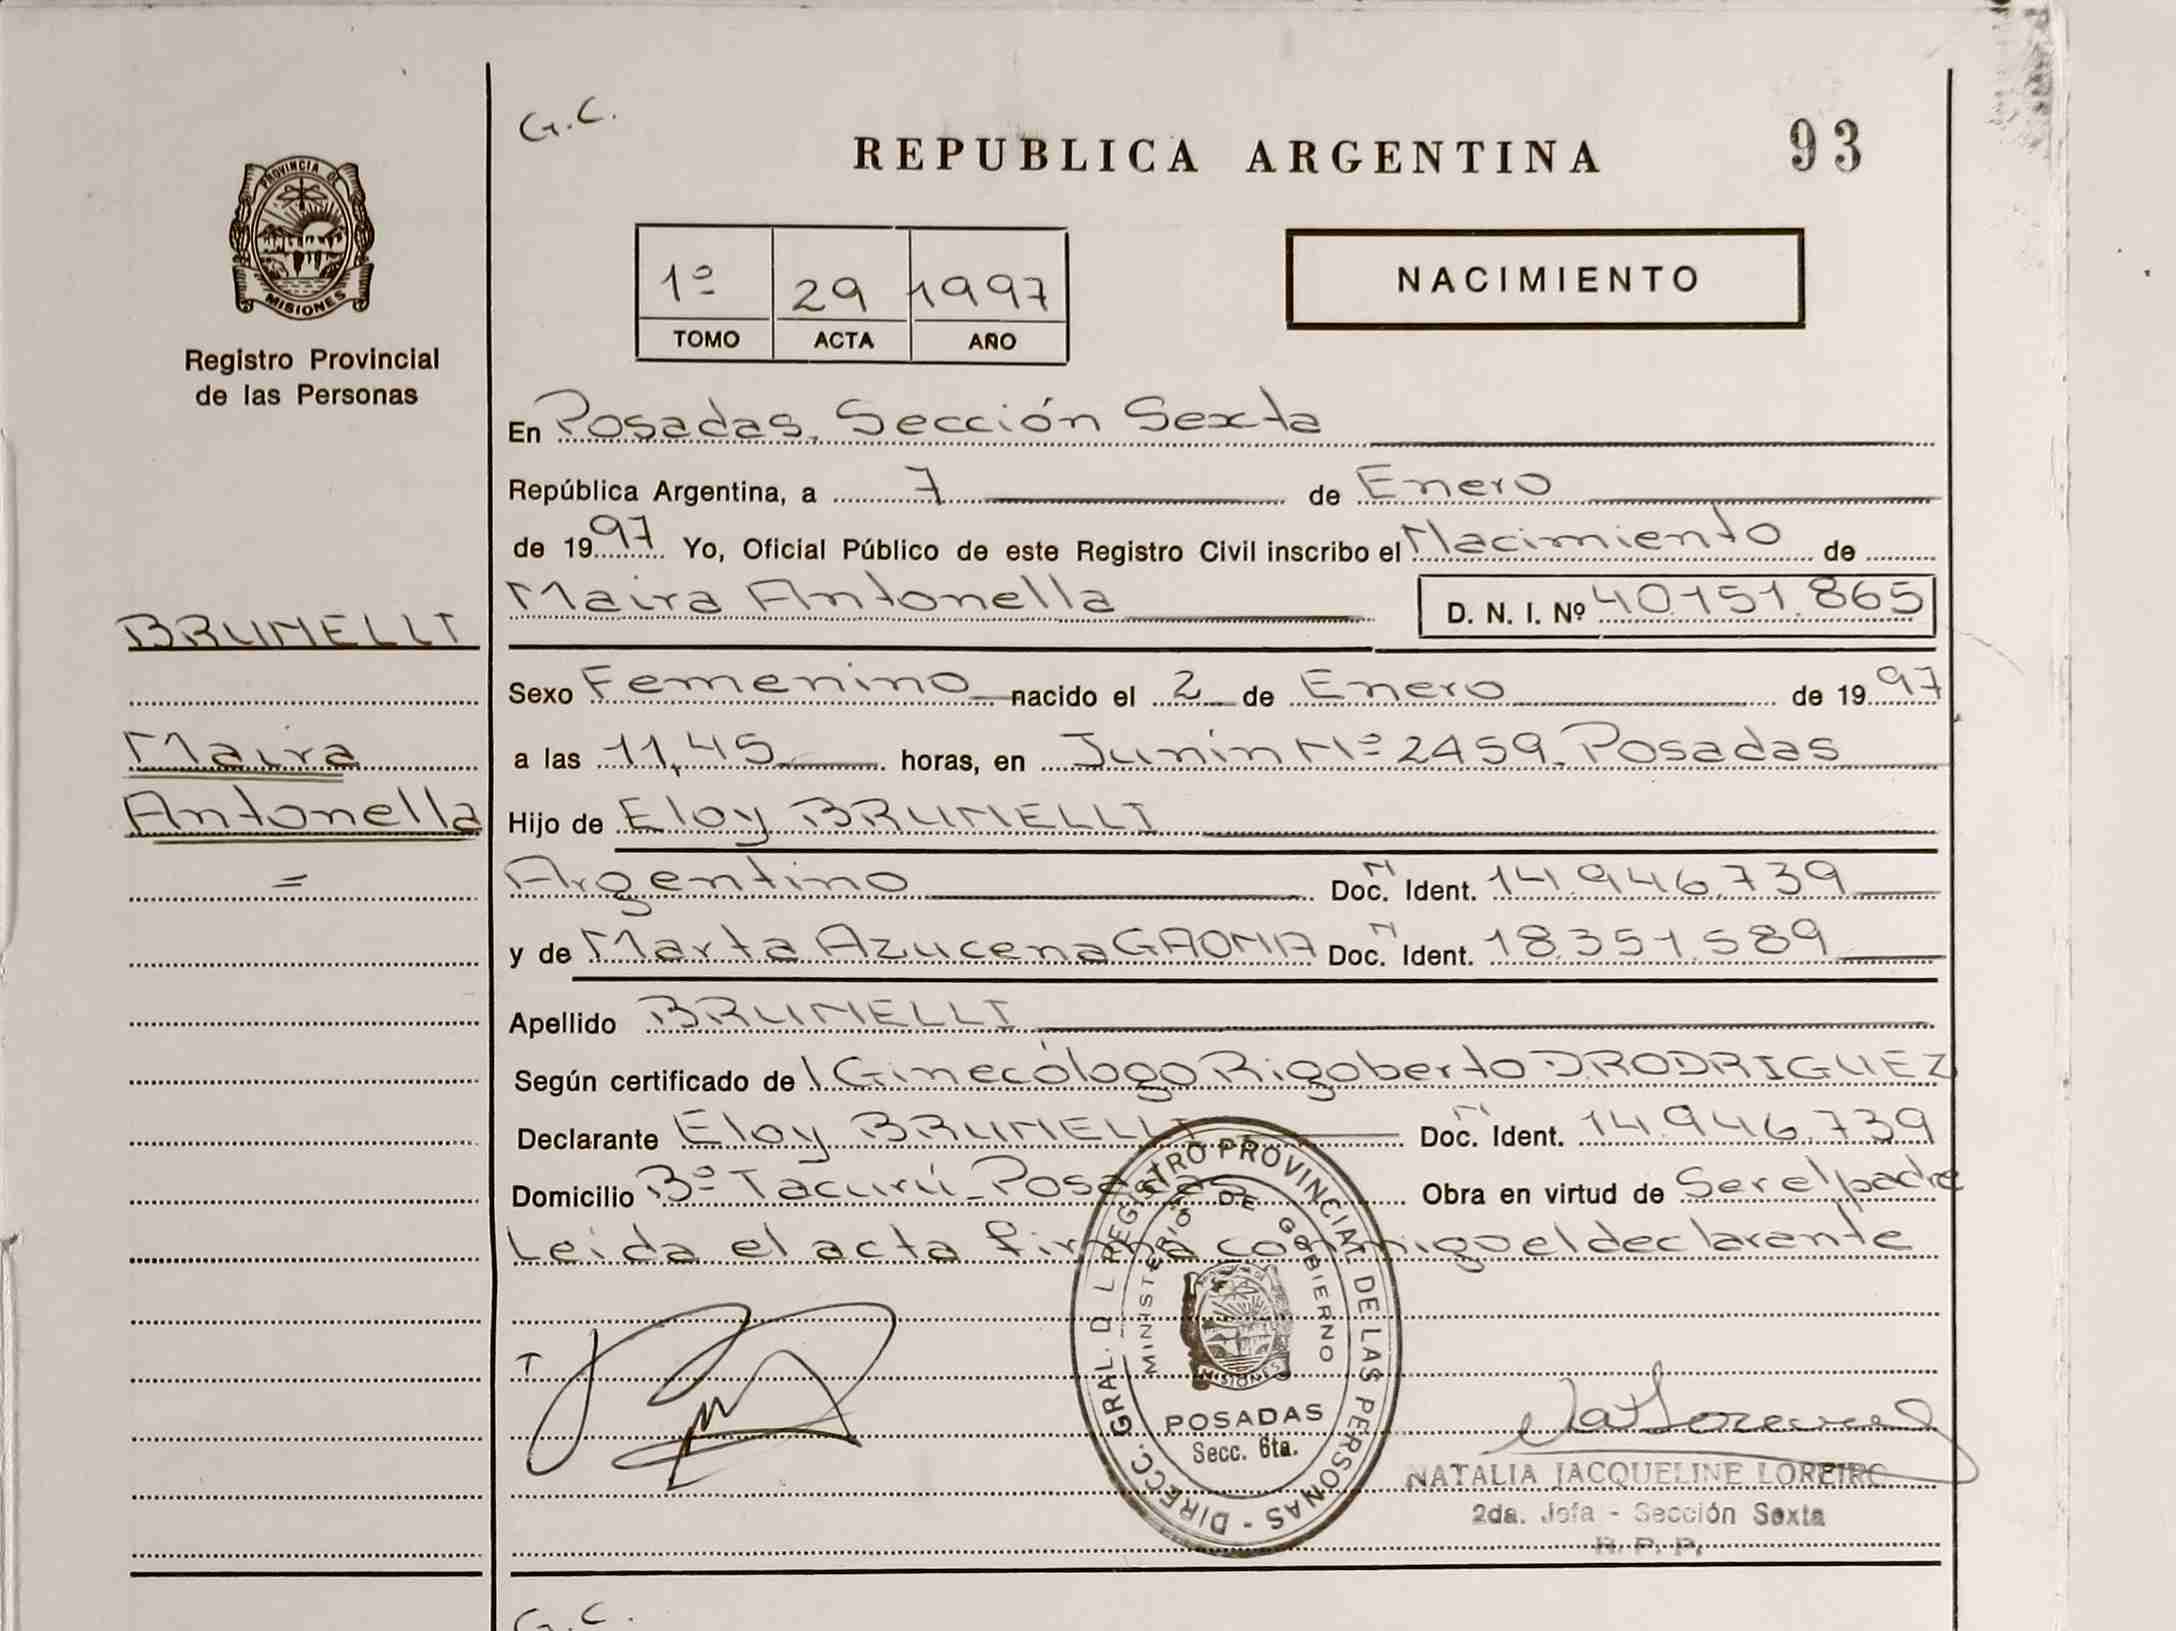 G.C.
REPUBLICA ARGENTINA
93
PROVINCIA DE
MISIONES
Registro Provincial
de las Personas
1º 29 1997
TOMO ACTA AÑO
NACIMIENTO
En Posadas, Sección Sexta
República Argentina, a 7 de Enero
de 1997 Yo, Oficial Público de este Registro Civil inscribo el Nacimiento de
Maira Antonella D. N. I. Nº 40.151.865
BRUNELLI
Sexo Femenino nacido el 2 de Enero de 1997
Maira
a las 11,45 horas, en Junín Nº 2459 Posadas
Antonella
Hijo de Eloy BRUNELLI
=
Argentino Doc. N Ident. 14.946.739
y de Marta Azucena GAONA Doc. N Ident. 18.351.589
Apellido BRUNELLI
Según certificado de l Ginecólogo Rigoberto D. RODRIGUEZ
Declarante Eloy BRUNELLI Doc. N Ident. 14.946.739
Domicilio Bº Tacurú - Posadas Obra en virtud de Ser el padre
Leida el acta firma conmigo el declarante
T
DIRECC. GRAL. DEL REGISTRO PROVINCIAL DE LAS PERSONAS -
MINISTERIO DE GOBIERNO
MISIONES
POSADAS
Secc. 6ta.
NATALIA JACQUELINE LOREIRO
2da. Jefa - Sección Sexta
R. P. P.
G.C.